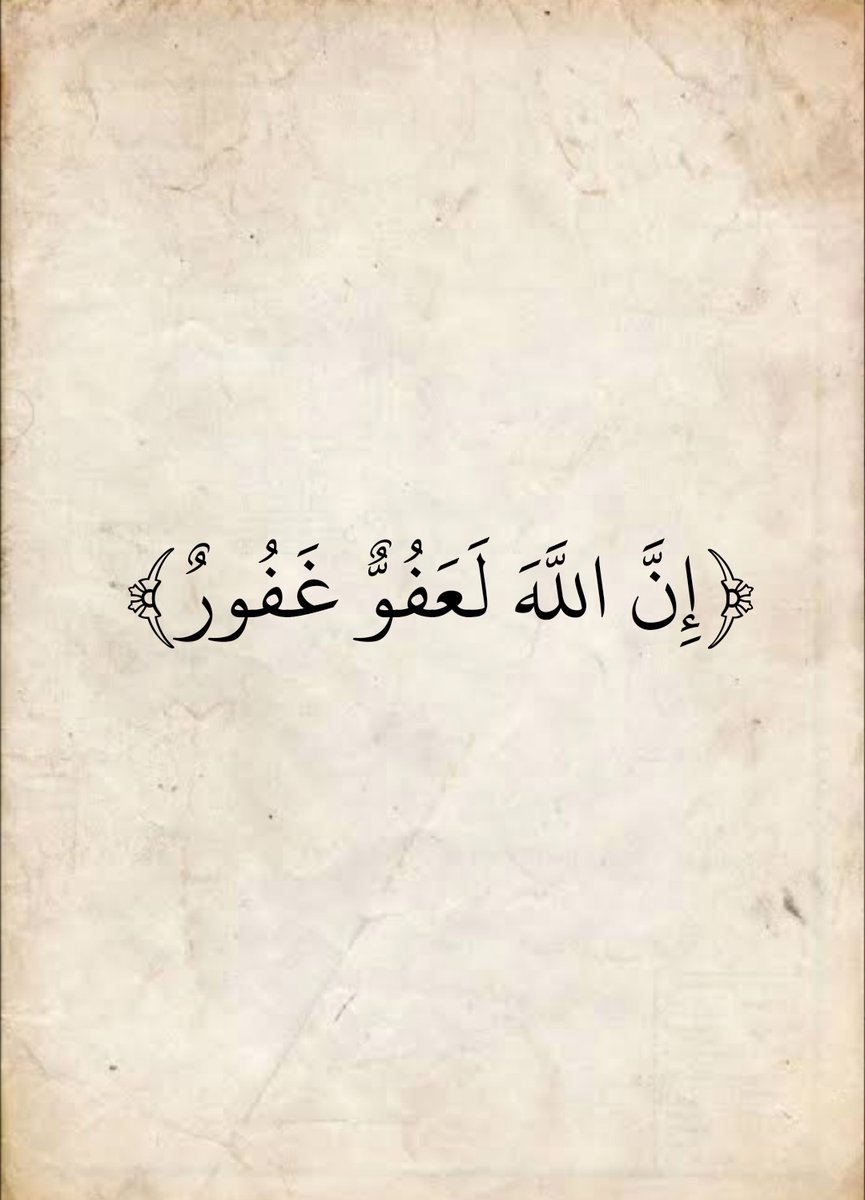 ﴿إِنَّ اللَّهَ لَعَفُوٌّ غَفُورٌ﴾